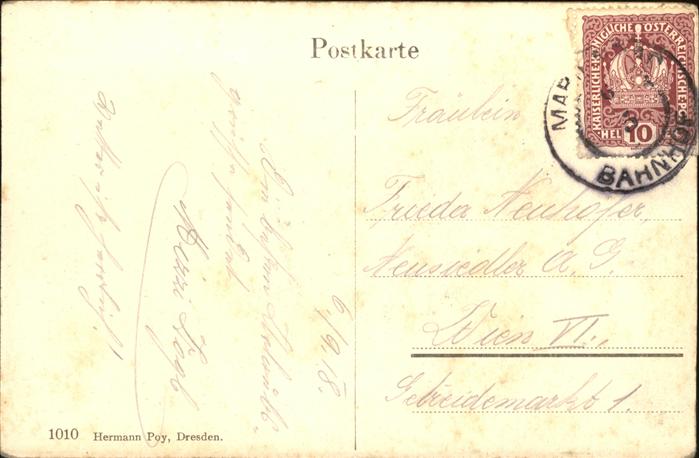 Postkarte
KAISERLICHE KÖNIGLICHE ÖSTERREICHISCHE POST
HEL 10
MAR
BAHNHOF
Fräulein
Frieda Neuhofer,
Neusiedler A. G.
Wien VI.,
Getreidemarkt 1.
6./9. 18.
Die besten Urlaubs-
grüsse sendet
Mizzi Vogl
Wetter ist herrlich!
1010 Hermann Poy, Dresden.